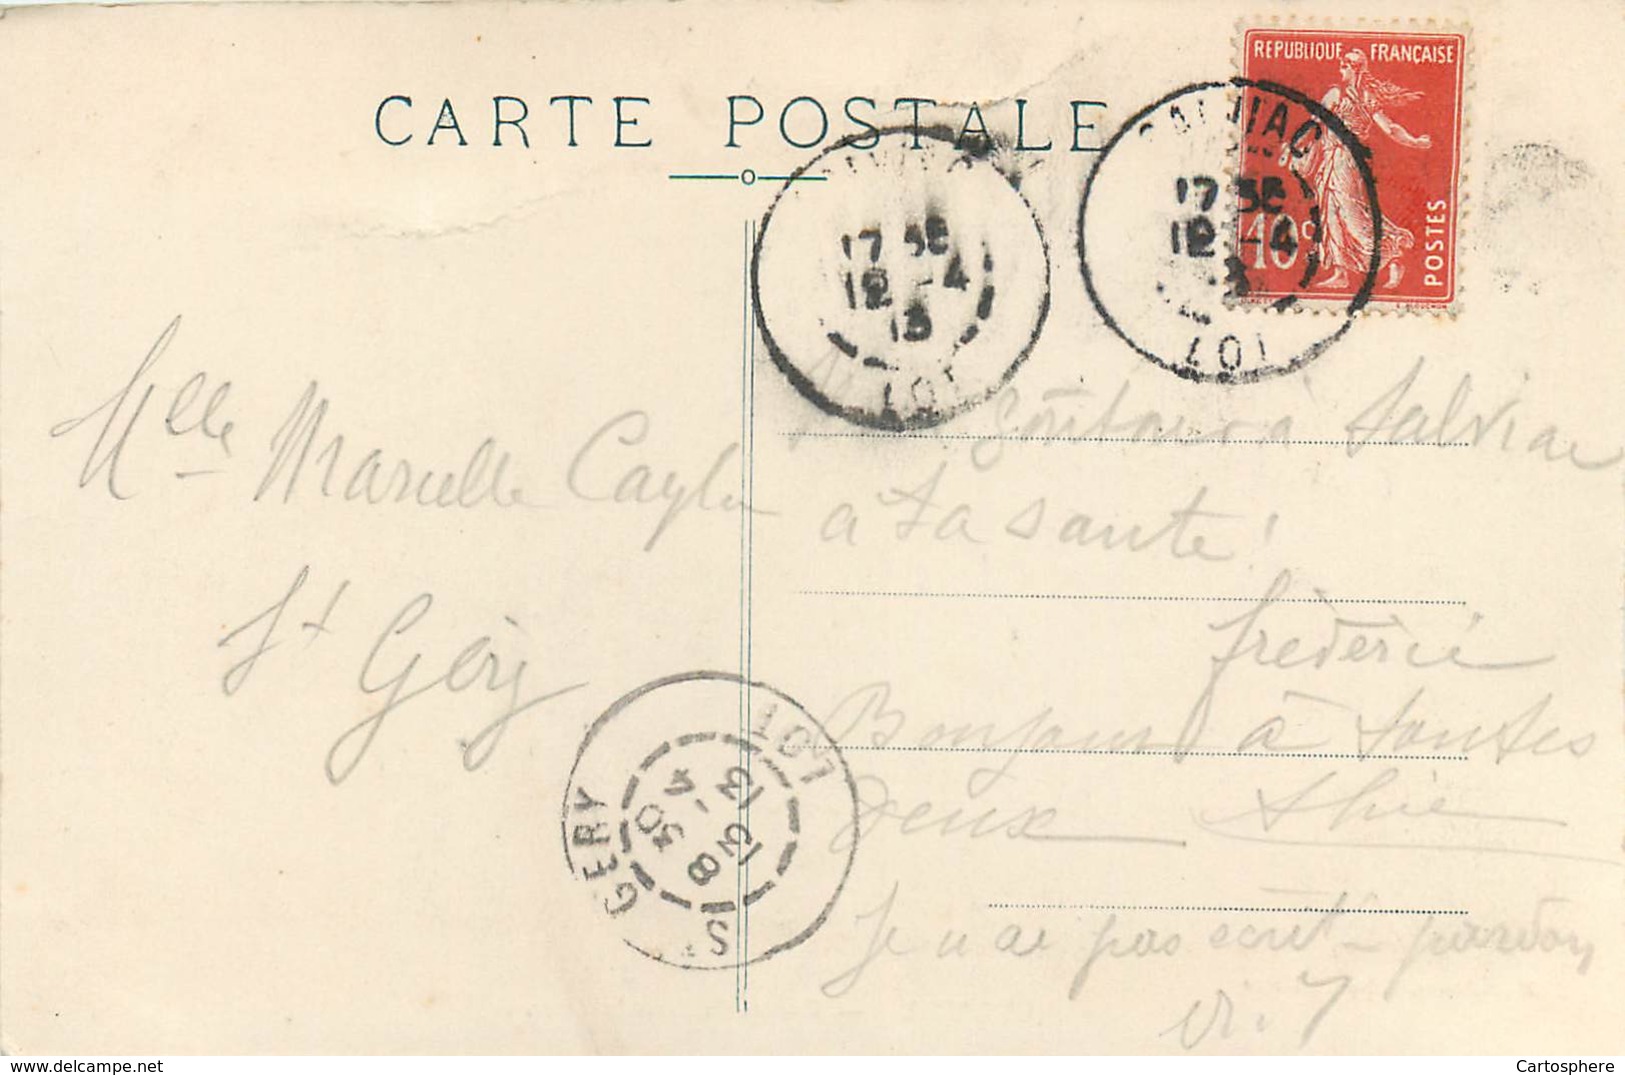 CARTE POSTALE
REPUBLIQUE FRANÇAISE
10c
POSTES
SALVIAC
17 35
12 -4
LOT
17 35
12 -4
13
LOT
Mlle Marcelle Cayla
St Géry
à Salviac
a ta santé!
frédéric
Bonjour à toutes
deux
Je n ai pas écrit - pardon
LOT
13 8 30
-4
13
ST GERY
Cartosphere